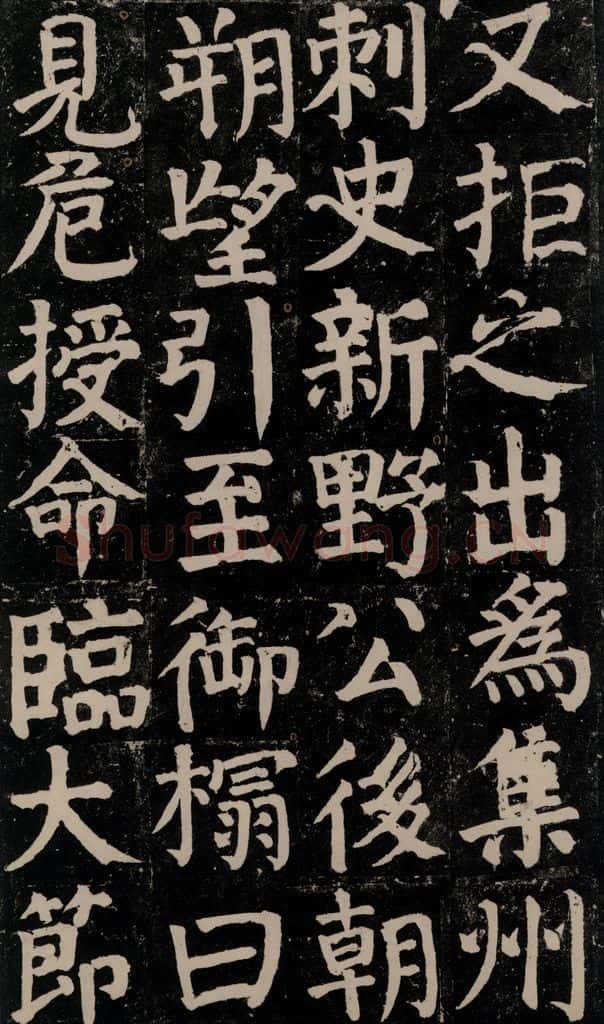 又拒之出為集州
刺史新野公後朝
朔望引至御榻曰
見危授命臨大節
Shufawang.CN